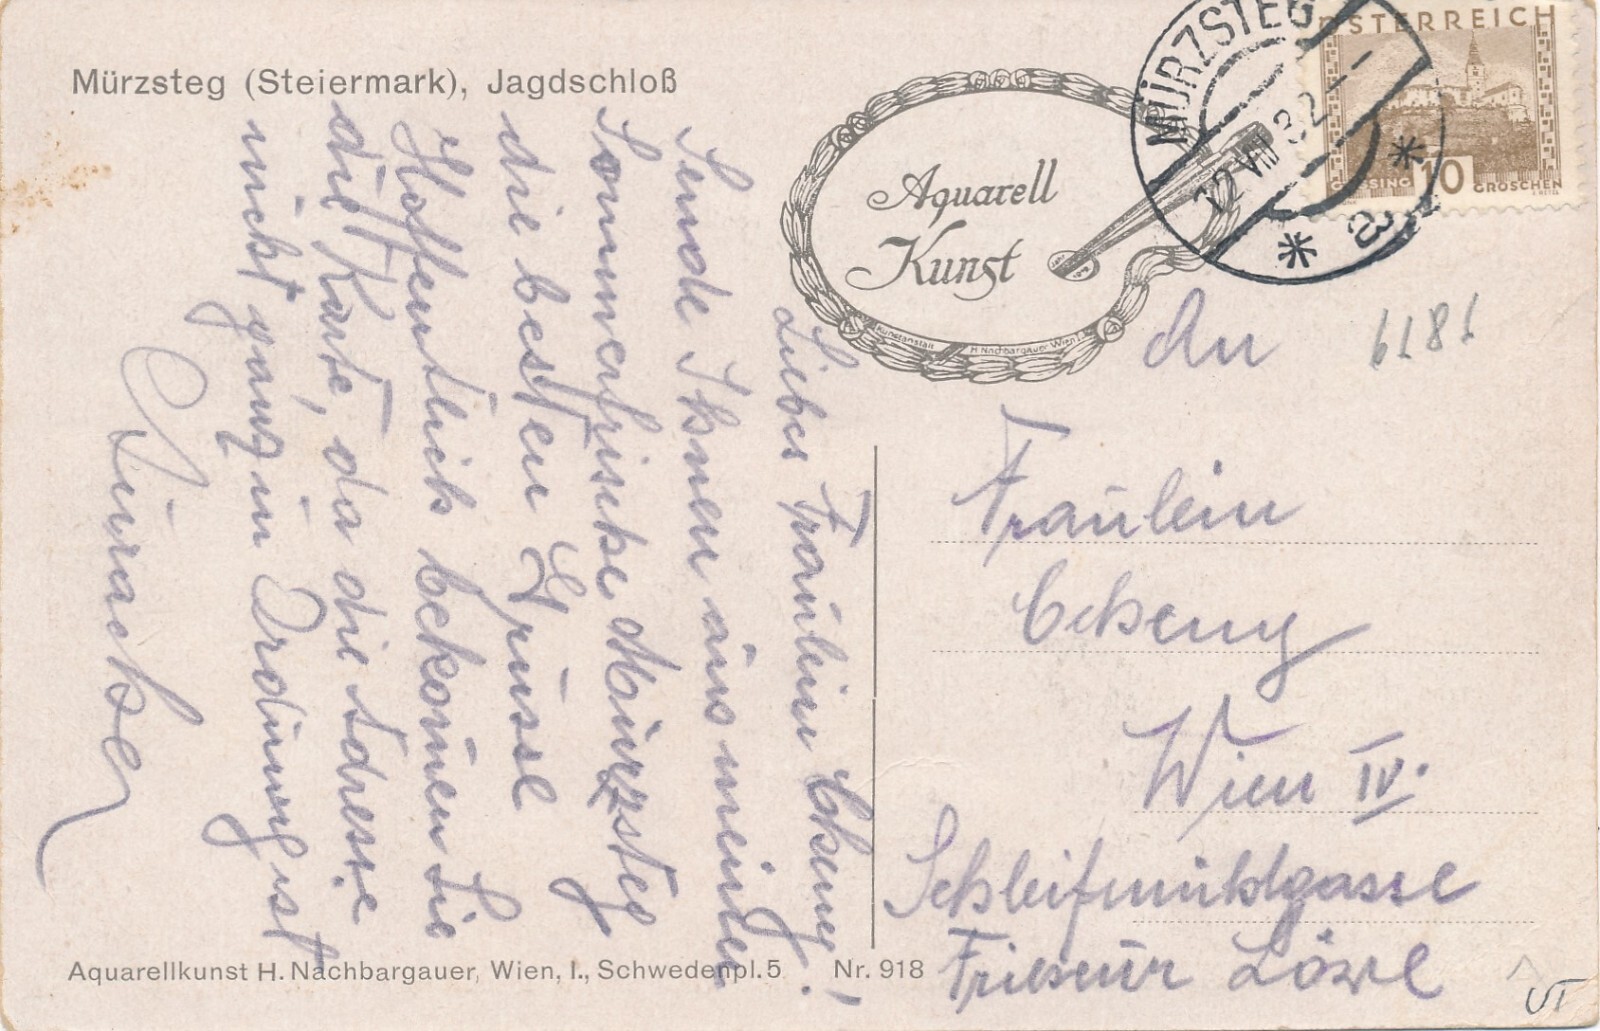 Mürzsteg (Steiermark), Jagdschloß
Aquarell
Kunst
Kunstanstalt H. Nachbargauer Wien I.
MÜRZSTEG
12.VII.32
* a *
ÖSTERREICH
GÜSSING 10 GROSCHEN
Liebes Fräulein
Sende Ihnen aus meiner
Sommerfrische Mürzsteg
die besten Grüsse
Hoffentlich bekommen Sie
die Karte, da die Adresse
nicht ganz in Ordnung ist
An
Fräulein
Wien IV.
Schleifmühlgasse
Friseur
Aquarellkunst H. Nachbargauer, Wien, I., Schwedenpl. 5 Nr. 918